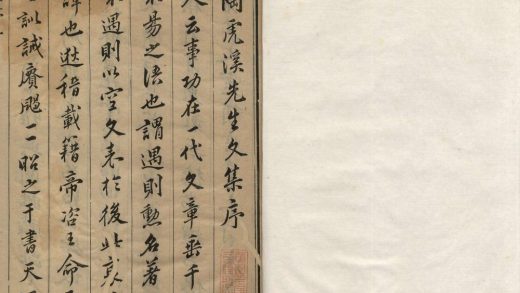 陶虎溪先生文集序
人云事功在一代文章垂千
易之語也謂遇則勲名著
遇則以空文表於後此
也逖稽載籍帝咨王命
訓誡賡颺一一昭之于書天